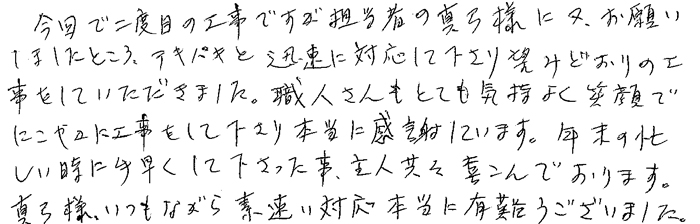 今回で二度目の工事ですが担当者の真弓様に又、お願い
しましたところ、テキパキと迅速に対応して下さり望みどおりの工
事をしていただきました。職人さんもとても気持よく笑顔で
にこやかに工事をして下さり本当に感謝しています。年末の忙
しい時に手早くして下さった事、主人共々喜こんでおります。
真弓様、いつもながら素速い対応本当に有難うございました。